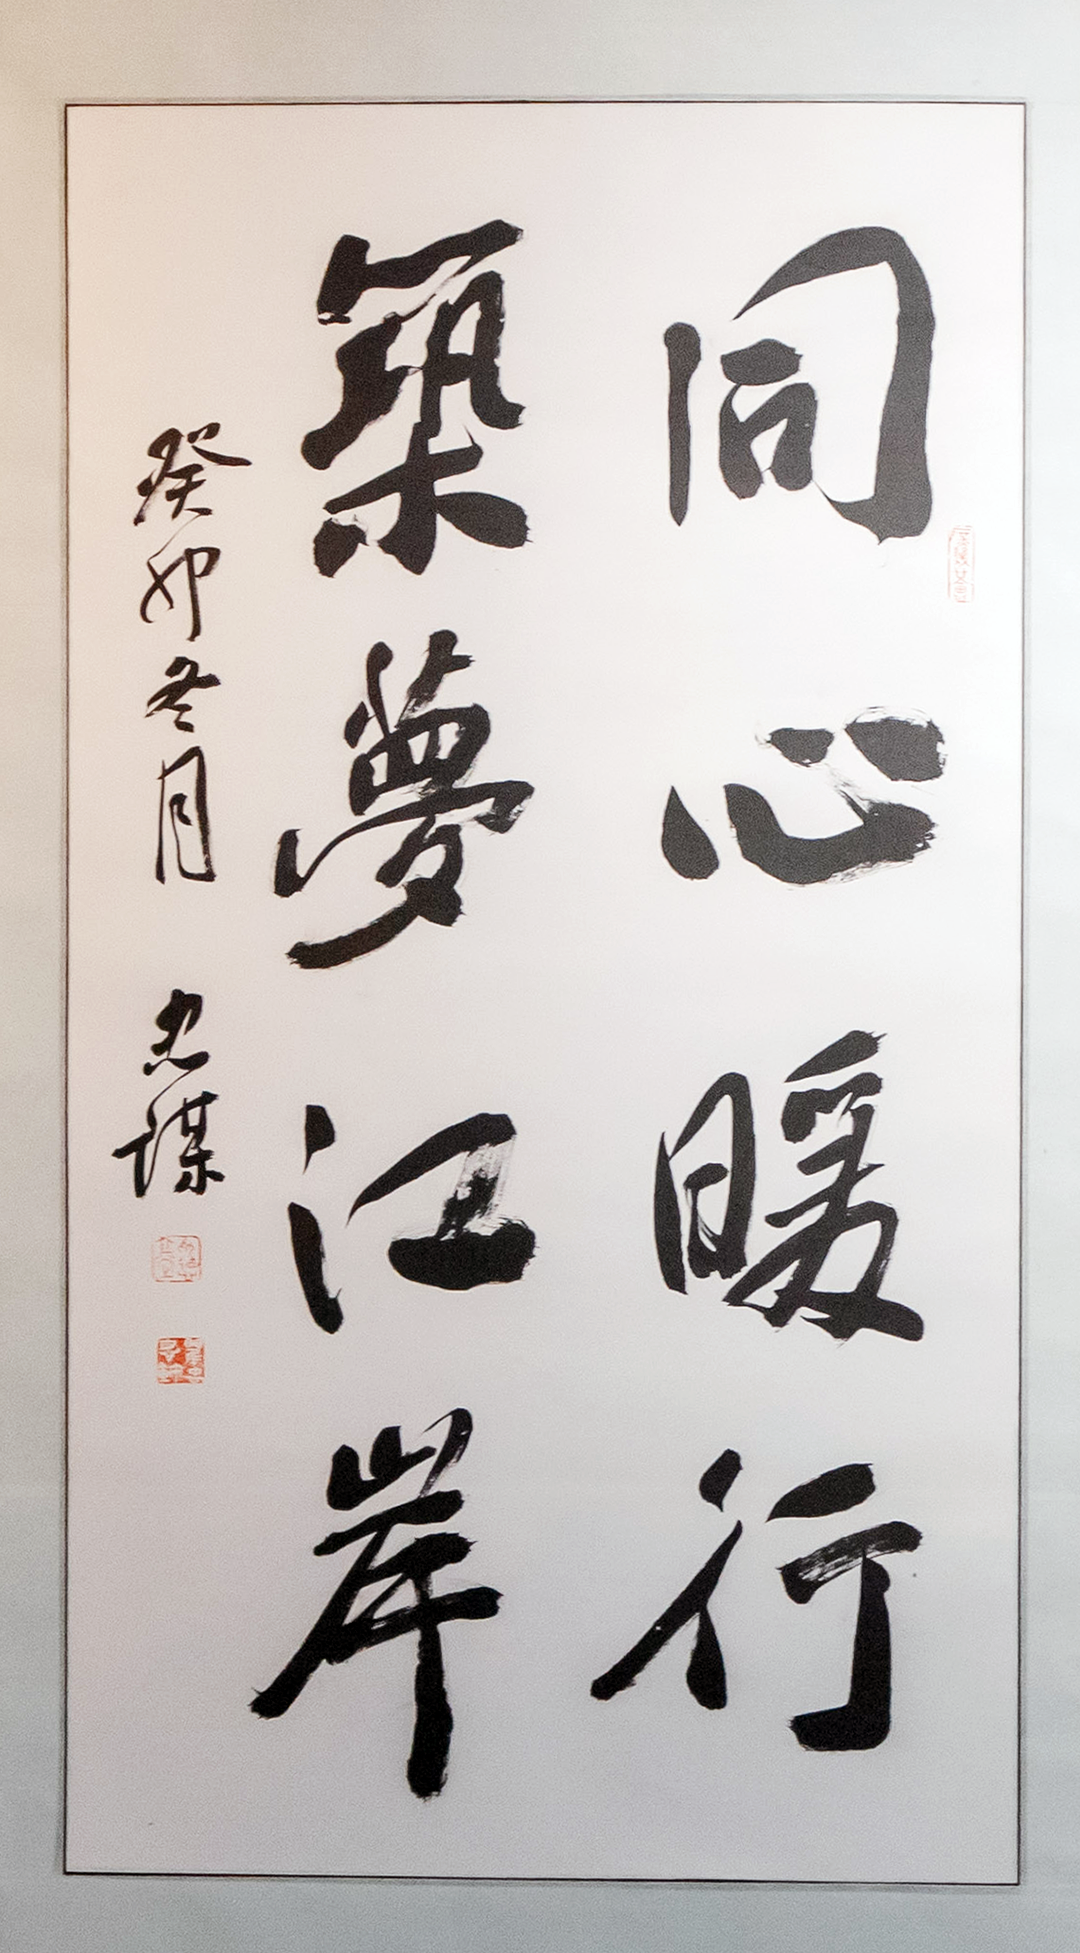 同心暖行
築夢江岸
癸卯冬月 忠謀